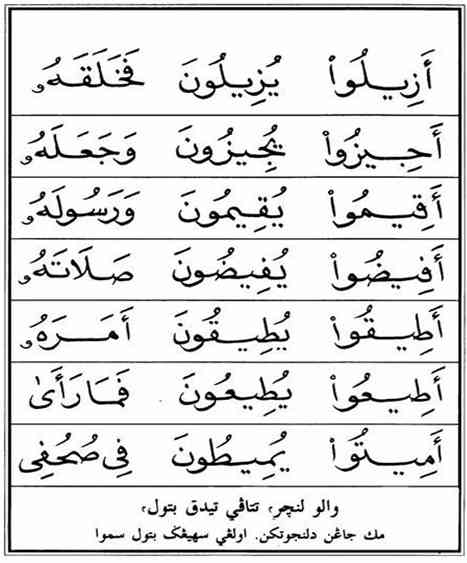 أَزِيلُواْ يُزِيلُونَ فَخَلَقَهُۥ
أَجِيزُواْ يُجِيزُونَ وَجَعَلَهُۥ
أَقِيمُواْ يُقِيمُونَ وَرَسُولَهُۥ
أَفِيضُواْ يُفِيضُونَ صَلَاتَهُۥ
أَطِيقُواْ يُطِيقُونَ أَمَرَهُۥ
أَطِيعُواْ يُطِيعُونَ فَمَا رَأَىٰ
أَمِيتُواْ يُمِيطُونَ فِي صُحُفِي
والو لنچر، تتاڤي تيدق بتول،
مك جاڠن دلنجوتكن. اولڠي سهيڠݢ بتول سموا